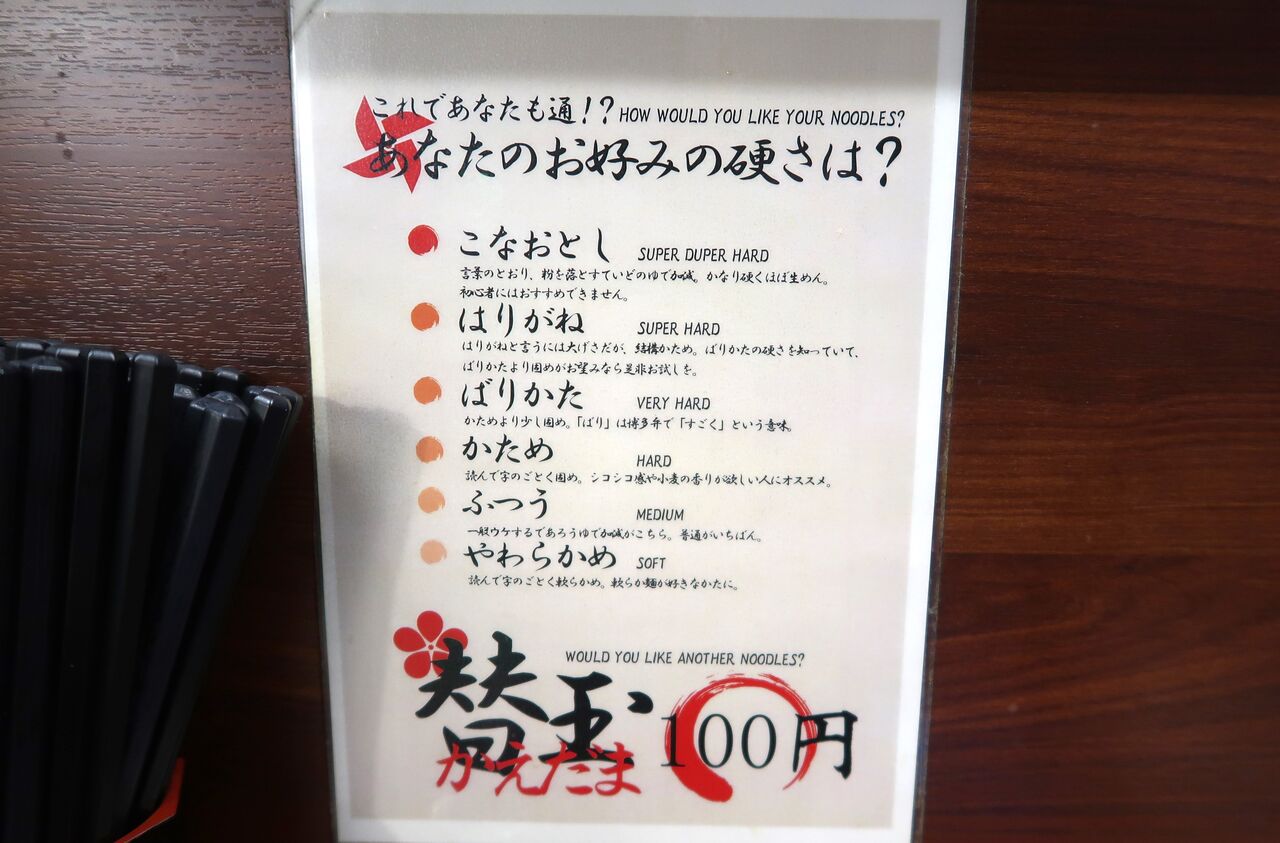 これであなたも通!? HOW WOULD YOU LIKE YOUR NOODLES?
あなたのお好みの硬さは?
こなおとし SUPER DUPER HARD
言葉のとおり、粉を落とすていどのゆで加減。かなり硬くほぼ生めん。
初心者にはおすすめできません。
はりがね SUPER HARD
はりがねと言うには大げさだが、結構かため。ばりかたの硬さを知っていて、
ばりかたより固めがお望みなら是非お試しを。
ばりかた VERY HARD
かためより少し固め。「ばり」は博多弁で「すごく」という意味。
かため HARD
読んで字のごとく固め。シコシコ感や小麦の香りが欲しい人にオススメ。
ふつう MEDIUM
一般ウケするであろうゆで加減がこちら。普通がいちばん。
やわらかめ SOFT
読んで字のごとく軟らかめ。軟らか麺が好きなかたに。
WOULD YOU LIKE ANOTHER NOODLES?
替玉 100円
かえだま